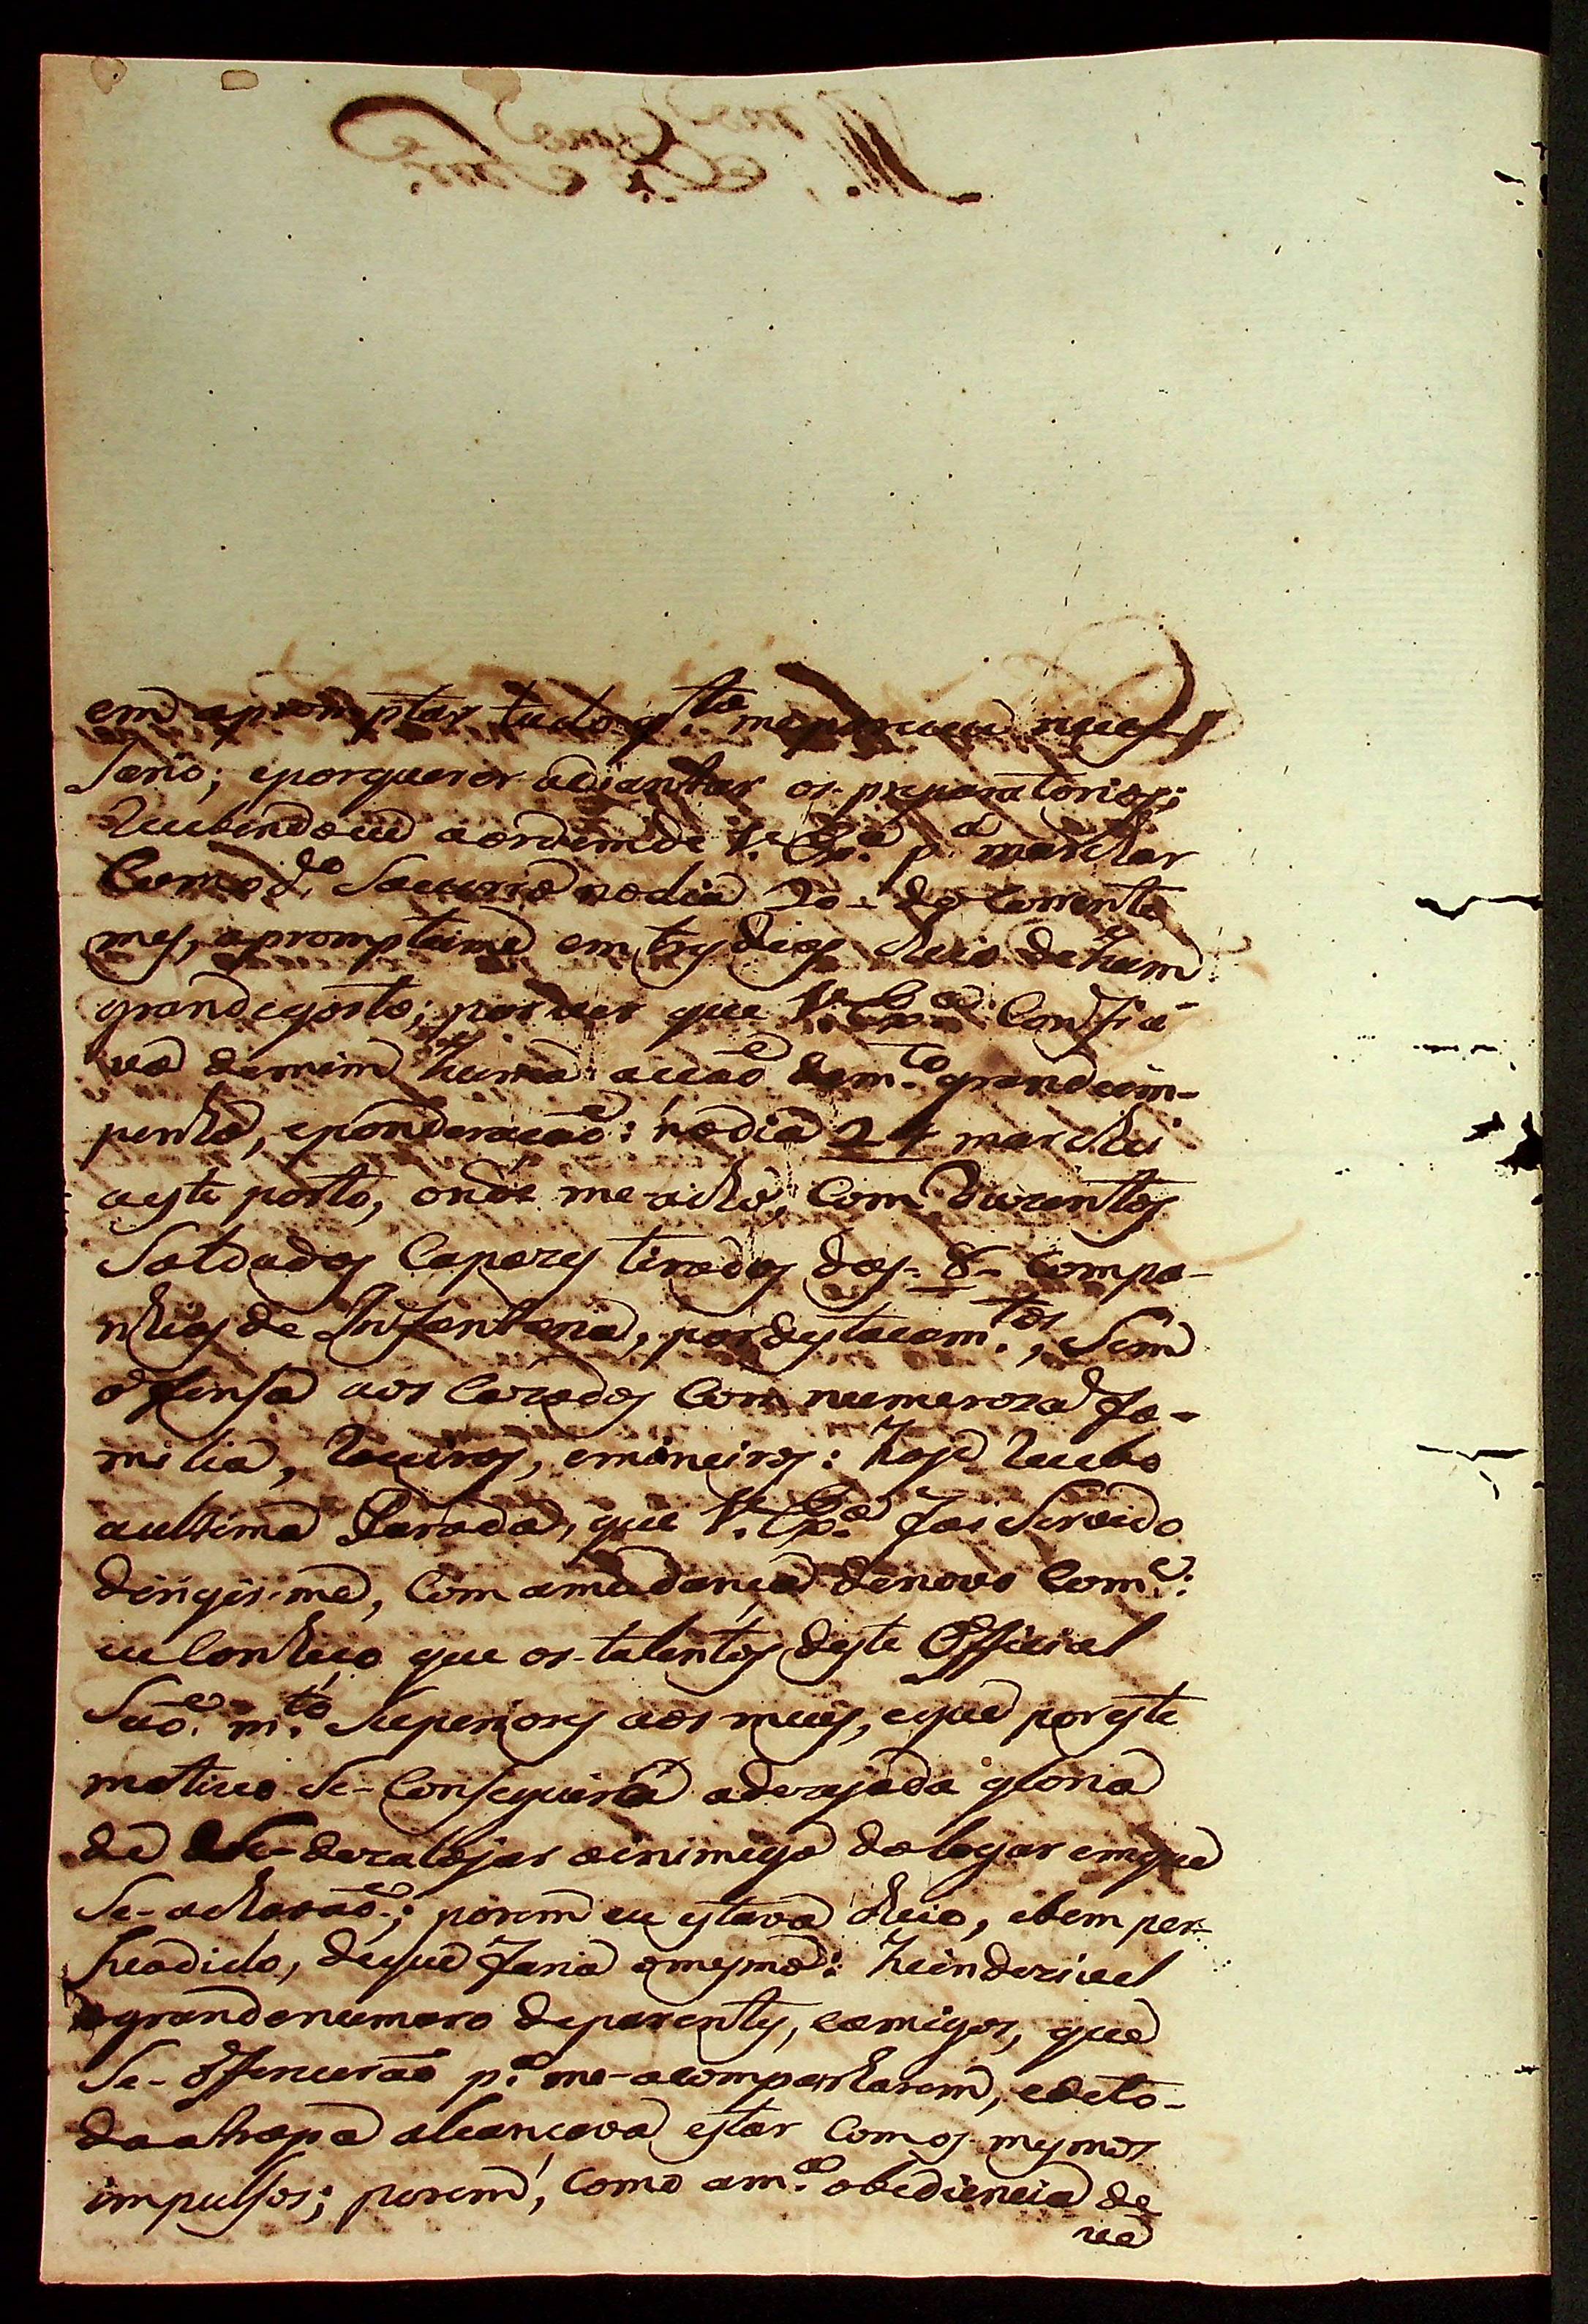 em apromptar tudo q.to me pareceu neces
sario; e por querer adiantar os preparatorios;
Recebendo eu a ordem de V. Ex.a p.a marchar
Com o d.o Socorro no dia 20 do Corrente
mes, apromptei me em tres dias cheio de hum
grande gosto; por ver que V. Ex.a Confia
va de mim huma acçaõ de m.to grande em-
penho, e ponderaçaõ: no dia 24 marchei
a este porto, onde me-acho, Com Duzentos
Soldados Capazes tirados das 8 Compa-
nhias de Infantaria, por destacam.tos, Sem
offensa aos Cazados Com numeroza fa-
milia, Roceiros, e mineiros: hoje Recebo
a ultima Parada, que V. Ex.a foi Servido
dirigir-me, Com a mudança de novo Com.e:
eu Conheço que os talentos deste Official
Saõ m.to Superiores aos meus, e que por este
motivo Se-Conseguirá a dezejada gloria
de Se-dezalojar o inimigo do logar em que
Se-acharaõ; porem eu estava cheio, e bem per-
suadido, de que faria o mesmo: he indezivel
o grande numaro de parentes, e amigos, que
Se-offereceraõ p.a me-acompanharem, e de to-
da a tropa alcançava estar Com os mesmos
impulsos; porem, como a m.a obediencia de
ve